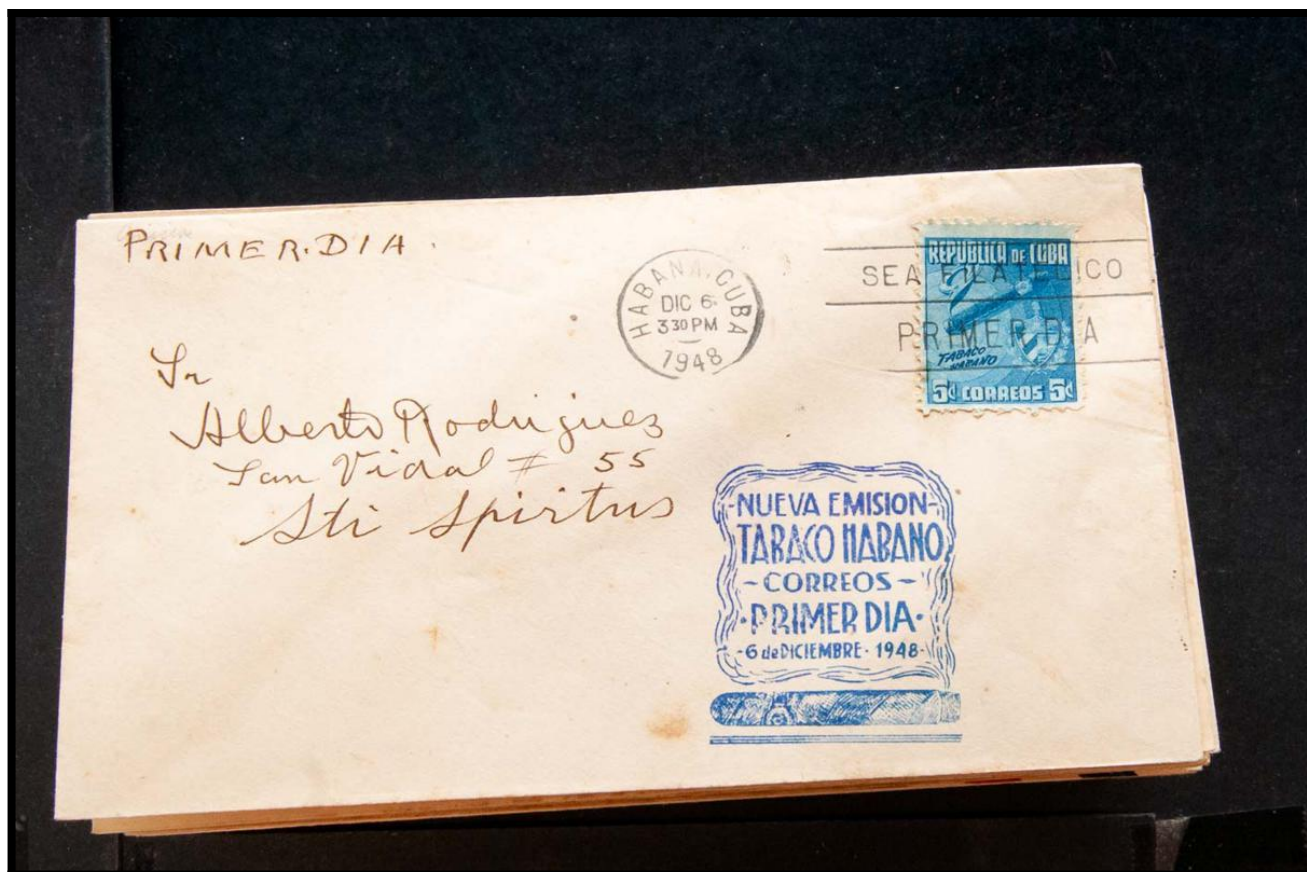 PRIMER.DIA.
HABANA, CUBA
DIC 6
3 30 PM
1948
REPUBLICA DE CUBA
SEA FILATELICO
PRIMER DIA
TABACO
HABANO
5¢ CORREOS 5¢
Sr
Alberto Rodriguez
San Vidal # 55
Sti Spiritus
-NUEVA EMISION-
TABACO HABANO
-CORREOS-
·PRIMER DIA·
-6 de DICIEMBRE· 1948-